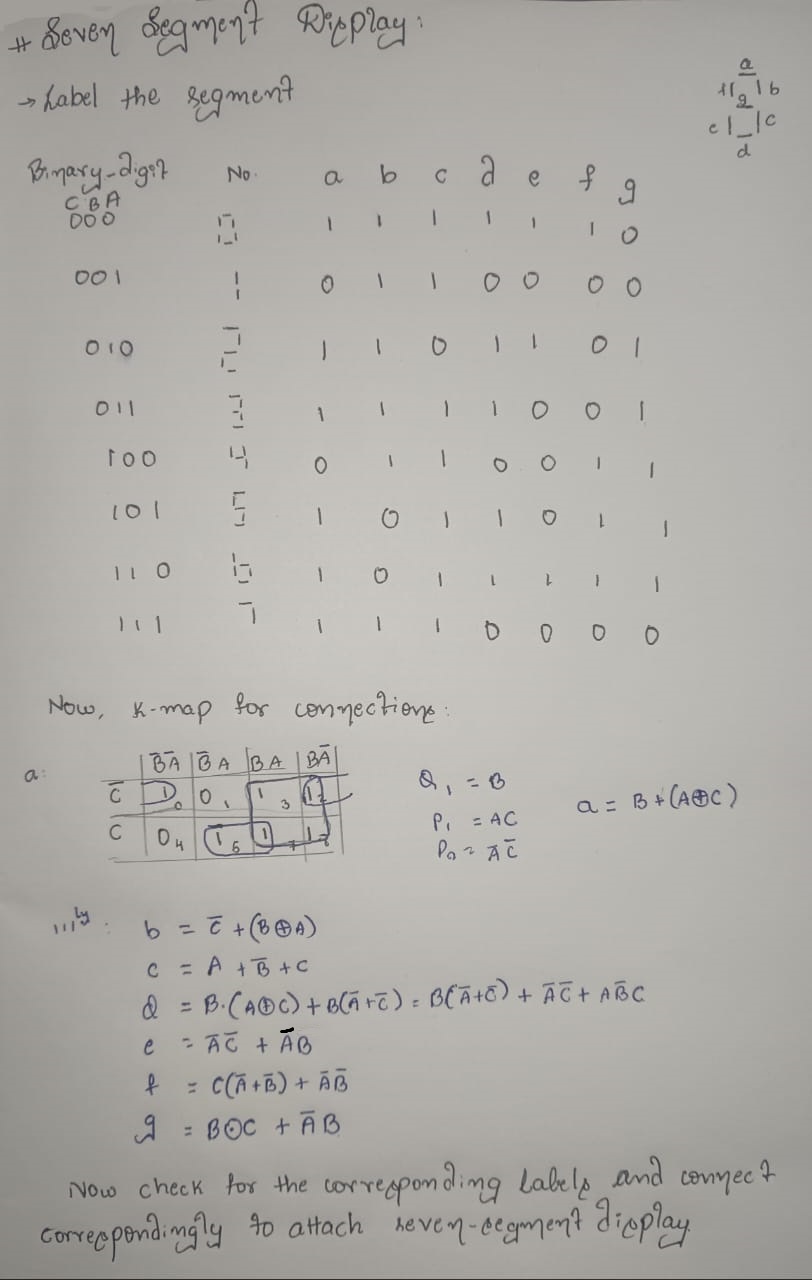 # Seven Segment Display:
→ Label the segment
a
f| g |b
e|_|c
d
Binary-digit No. a b c d e f g
C B A
000 0 1 1 1 1 1 1 0
001 1 0 1 1 0 0 0 0
010 2 1 1 0 1 1 0 1
011 3 1 1 1 1 0 0 1
100 4 0 1 1 0 0 1 1
101 5 1 0 1 1 0 1 1
110 6 1 0 1 1 1 1 1
111 7 1 1 1 0 0 0 0
Now, K-map for connections:
a: B̅A̅ B̅A BA BA̅
C̅ 1₀ 0₁ 1₃ 1₂
C 0₄ 1₅ 1₇ 1₆
Q₁ = B
P₁ = AC
P₂ = A̅C̅
a = B + (A⊕C)
111ly: b = C̅ + (B⊕A)
c = A + B̅ + C
d = B·(A⊕C) + B(A̅+C̅) = B(A̅+C̅) + A̅C̅ + AB̅C
e = A̅C̅ + A̅B
f = C(A̅+B̅) + A̅B̅
g = B⊙C + A̅B
Now check for the corresponding labels and connect
correspondingly to attach seven-segment display.